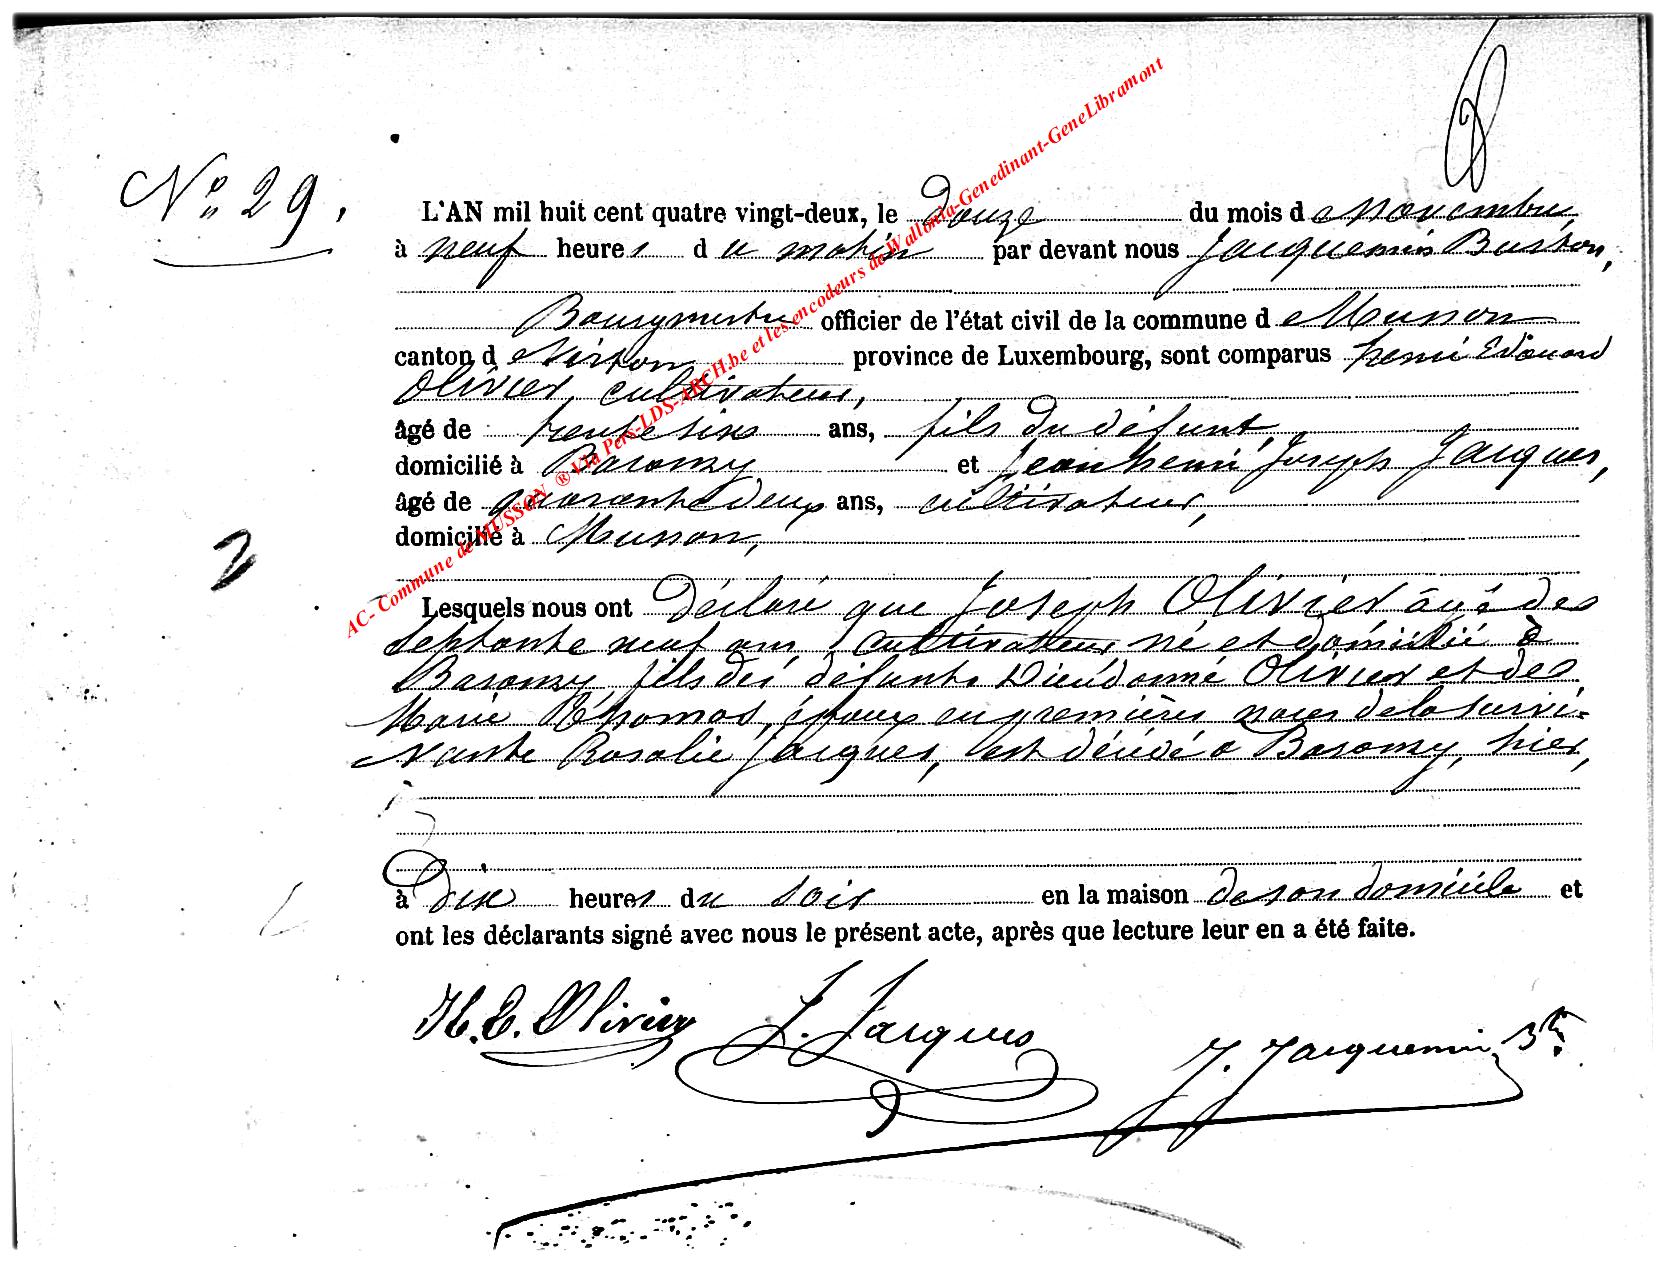 N° 29.
L'AN mil huit cent quatre vingt-deux, le Douze du mois de Novembre,
à neuf heures du matin par devant nous Jacquemin Buston,
Bourgmestre officier de l'état civil de la commune de Musson
canton de Virton province de Luxembourg, sont comparus henri Edouard
Olivier, cultivateur,
âgé de trente six ans, fils du défunt,
domicilié à Baranzy et Jean henri Joseph Jacques,
âgé de quarante deux ans, cultivateur,
domicilié à Musson,
Lesquels nous ont Déclaré que Joseph Olivier âgé de
septante neuf ans, cultivateur, né et domicilié à
Baranzy, fils des défunts Dieudonné Olivier et de
Marie Thomas, époux en premières noces de la survi-
vante Rosalie Jacques, est décédé à Baranzy, hier,
à Dix heures du soir en la maison de son domicile et
ont les déclarants signé avec nous le présent acte, après que lecture leur en a été faite.
H. E. Olivier J. Jacques J. Jacquemin
2
AC- Commune de MUSSON ® Via Pers-LDS-ARCH.be et les encodeurs de Wallonia-Genedinant-GeneLibramont